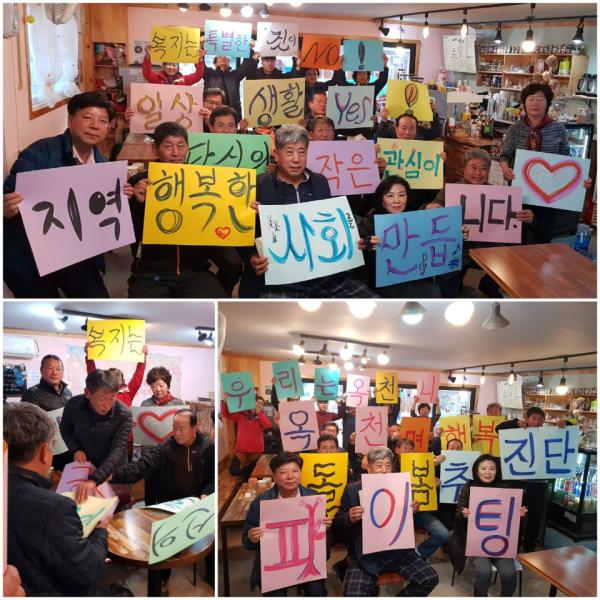 복지는 특별한 것이 NO !
일상 생활 Yes !
당신의 작은 관심이
지역 행복한 사회를 만듭니다.
복지는
우리는 옥천
옥천면행복
돌봄추진단
파이팅